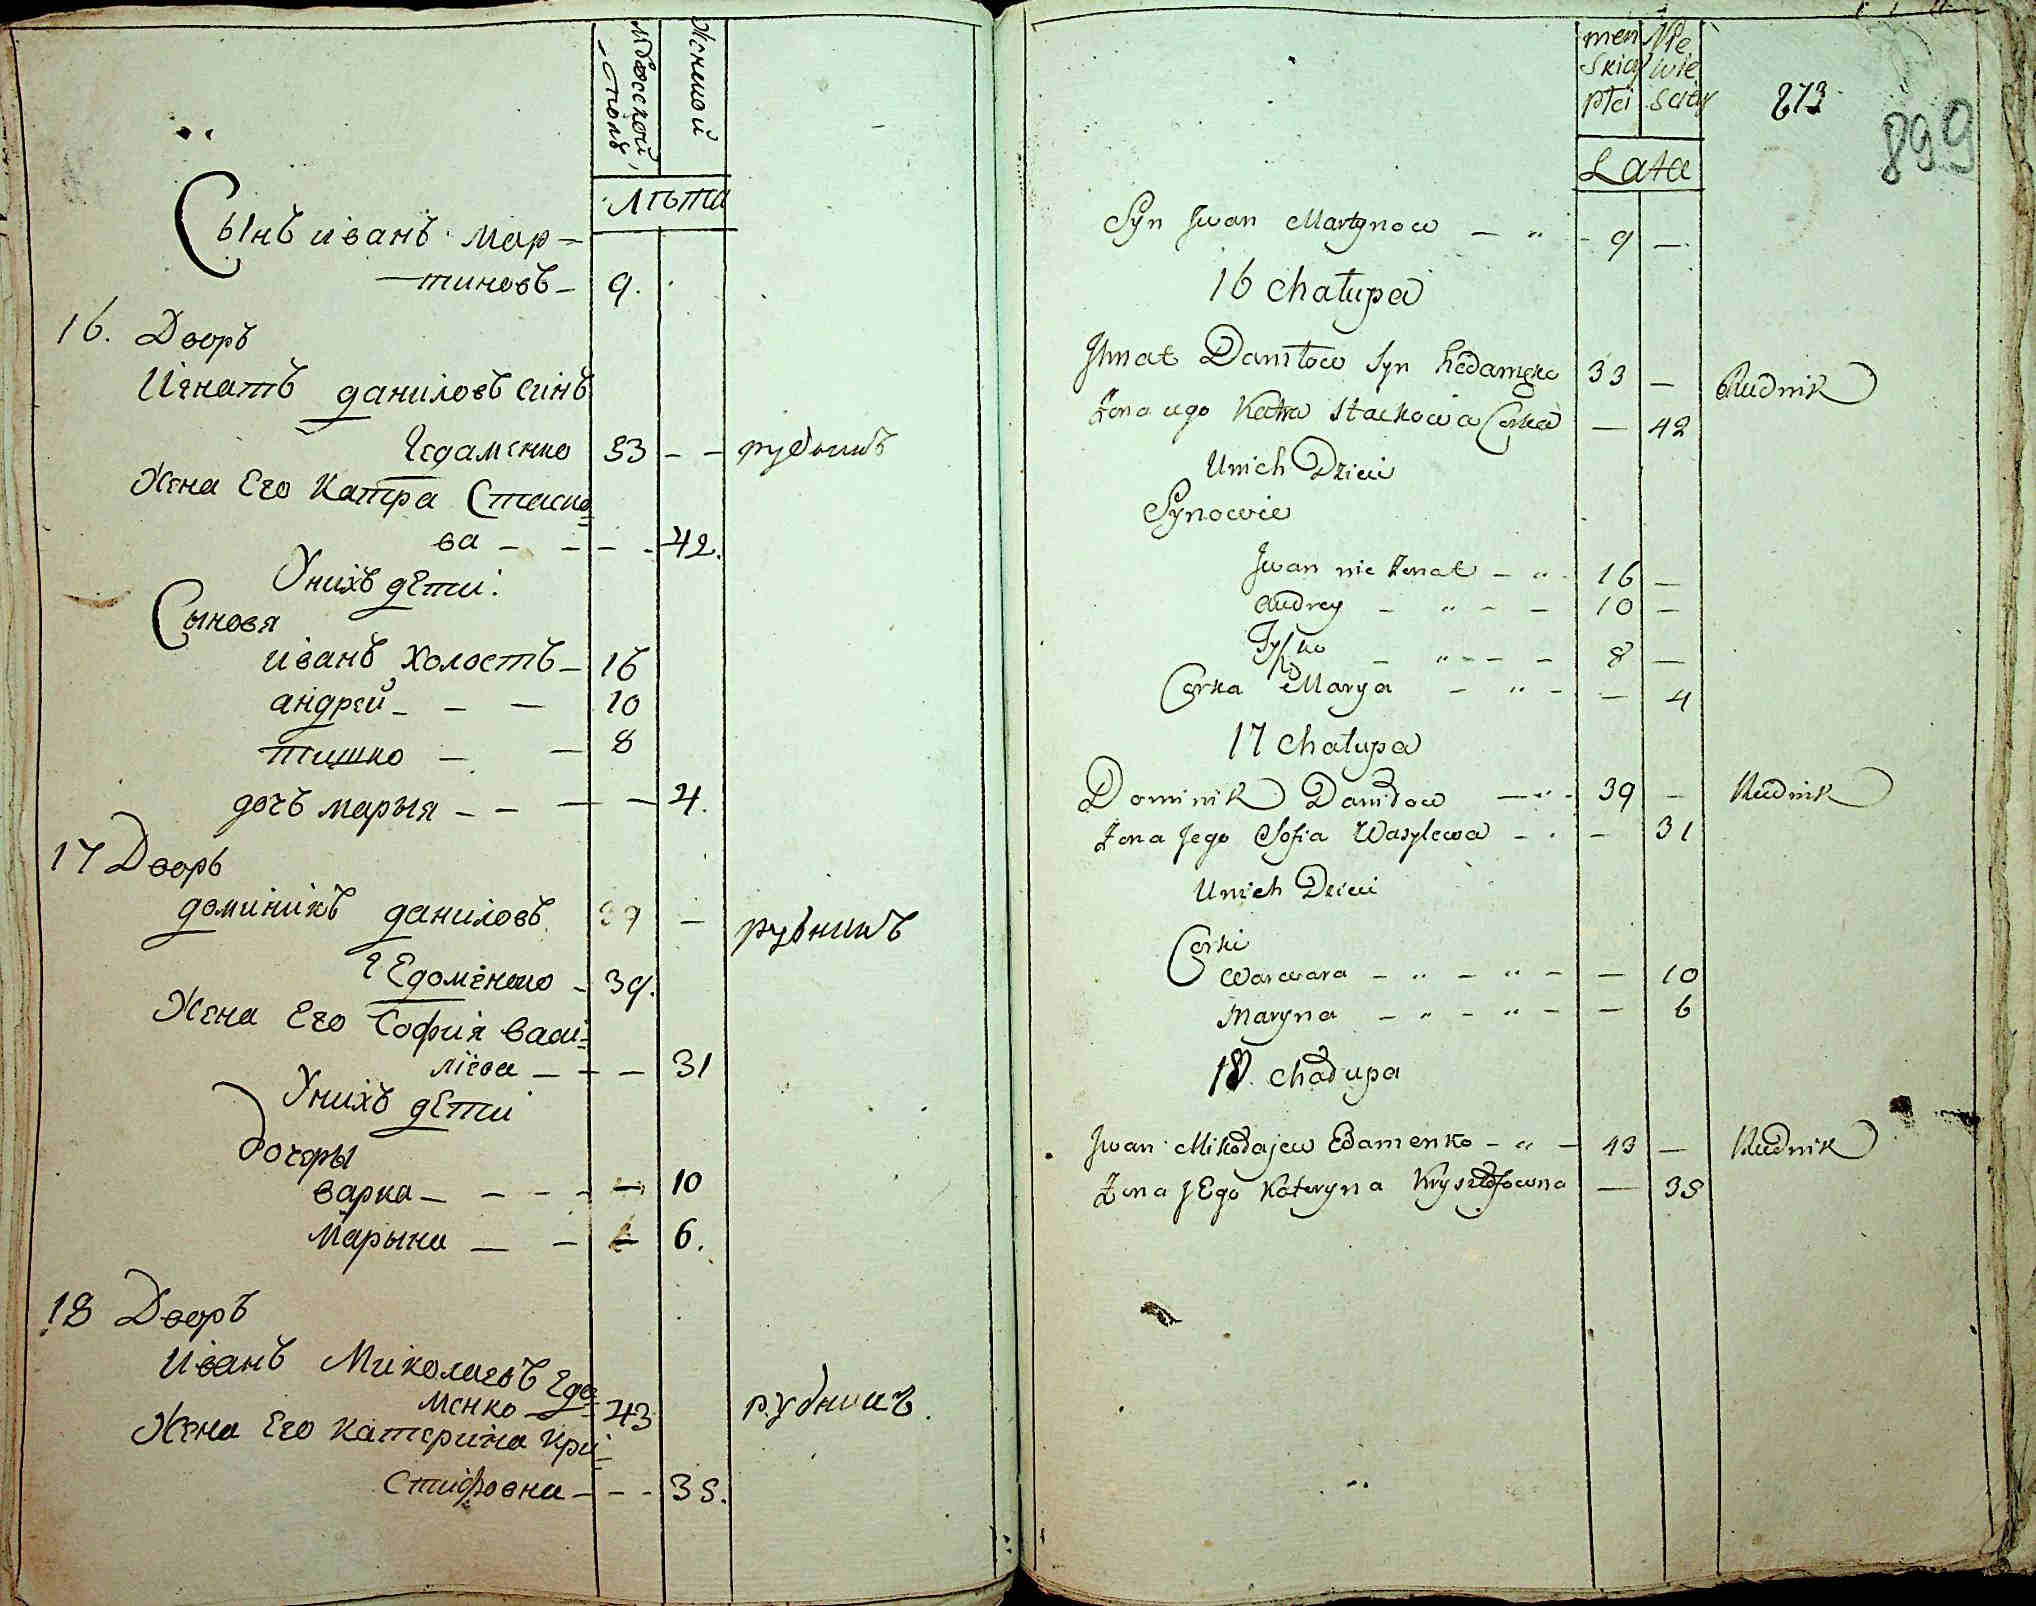 Мужеской
полъ
Женской
Лѣта
Сынъ иванъ Мар-
тиновъ - 9.
16. Дворъ
Игнатъ даниловъ синъ
Гедаменко 33 - - рудникъ
Жена Его Катра Стаско=
ва - - - - 42.
Унихъ дѣти:
Сыновя
иванъ холостъ - 16
андрей - - - 10
тишко - - 8
дочъ марыя - - - - 4.
17 Дворъ
доминикъ даниловъ 39 - рудникъ
гЕдоменко - 39.
Жена Его София васи=
лiева - - - 31
Унихъ дЕти
Дочеры
варка - - - - - 10
Марына - - - 6.
18 Дворъ
Иванъ Миколаевъ Едо=
менко - 43 рудникъ.
Жена Его Катерина Кри=
стифовна - - - 35.
men Nie
skiey wie
płci sciey
273
899
Lata
Syn Jwan Martynow - " - 9 -
16 chałupa
Jhnat Daniłow Syn hedamenko 33 - Rudnik
Żona iego Katra Stackowa Corka - 42
Unich Dzieci
Synowie
Jwan nie żenat - " - 16 -
Andrey - " - - 10 -
Tyszko - " - - - 8 -
Corka Marya - " - - 4
17 chałupa
Dominik Daniłow - " - 39 - Rudnik
Żona Jego Sofia Wasylewa - . - 31
Unich Dzieci
Corki
Warwara - " - " - - 10
Maryna - " - " - - 6
18. chałupa
Jwan Mikołajew Edamenko - " - 43 - Rudnik
Żona JEgo Kateryna Krysztofowna - 35